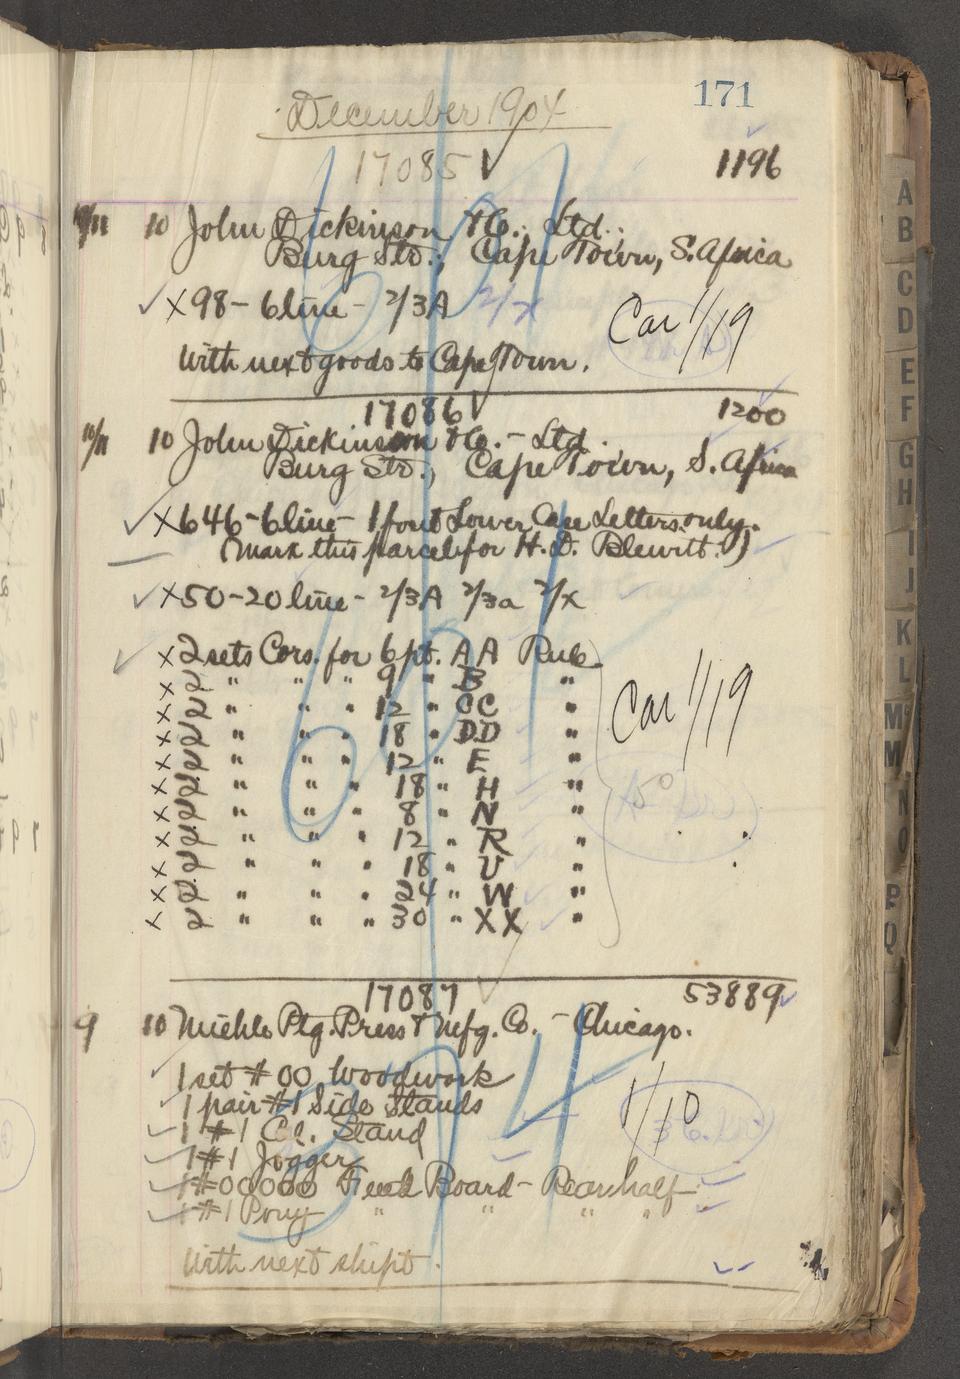 171
December 1904
17085 1196
11/11 10 John Dickinson & Co., Ltd.
Burg Str., Cape Town, S. Africa
x 98 - 6 line - 2/3A 2/x
Car 1/19
With next goods to Cape Town.
17086 1200
11/11 10 John Dickinson & Co. - Ltd.
Burg Str., Cape Town, S. Africa
x 646 - 6 line - 1 font Lower Case Letters only.
(Mark this parcel for H. D. Blewitt.)
x 50 - 20 line - 2/3A 2/3a 2/x
x 2 sets Cors. for 6 pt. AA Rule
x 2 " " " 9 " B "
x 2 " " " 12 " CC "
x 2 " " " 18 " DD "
x 2 " " " 12 " E "
x 2 " " " 18 " H "
x 2 " " " 8 " N "
x 2 " " " 12 " R "
x 2 " " " 18 " U "
x 2 " " " 24 " W "
x 2 " " " 30 " XX "
Car 1/19
17087 53889
9 10 Miehle Ptg. Press & Mfg. Co. - Chicago.
1 set #00 Woodwork
1 pair #1 Side Stands
1 #1 Cyl. Stand
1 #1 Jogger
1 #00000 Feed Board - Rear half
1 #1 Pony " " " "
1/10
With next shipt.
A
B
C
D
E
F
G
H
I
J
K
L
M
M
N
O
P
Q